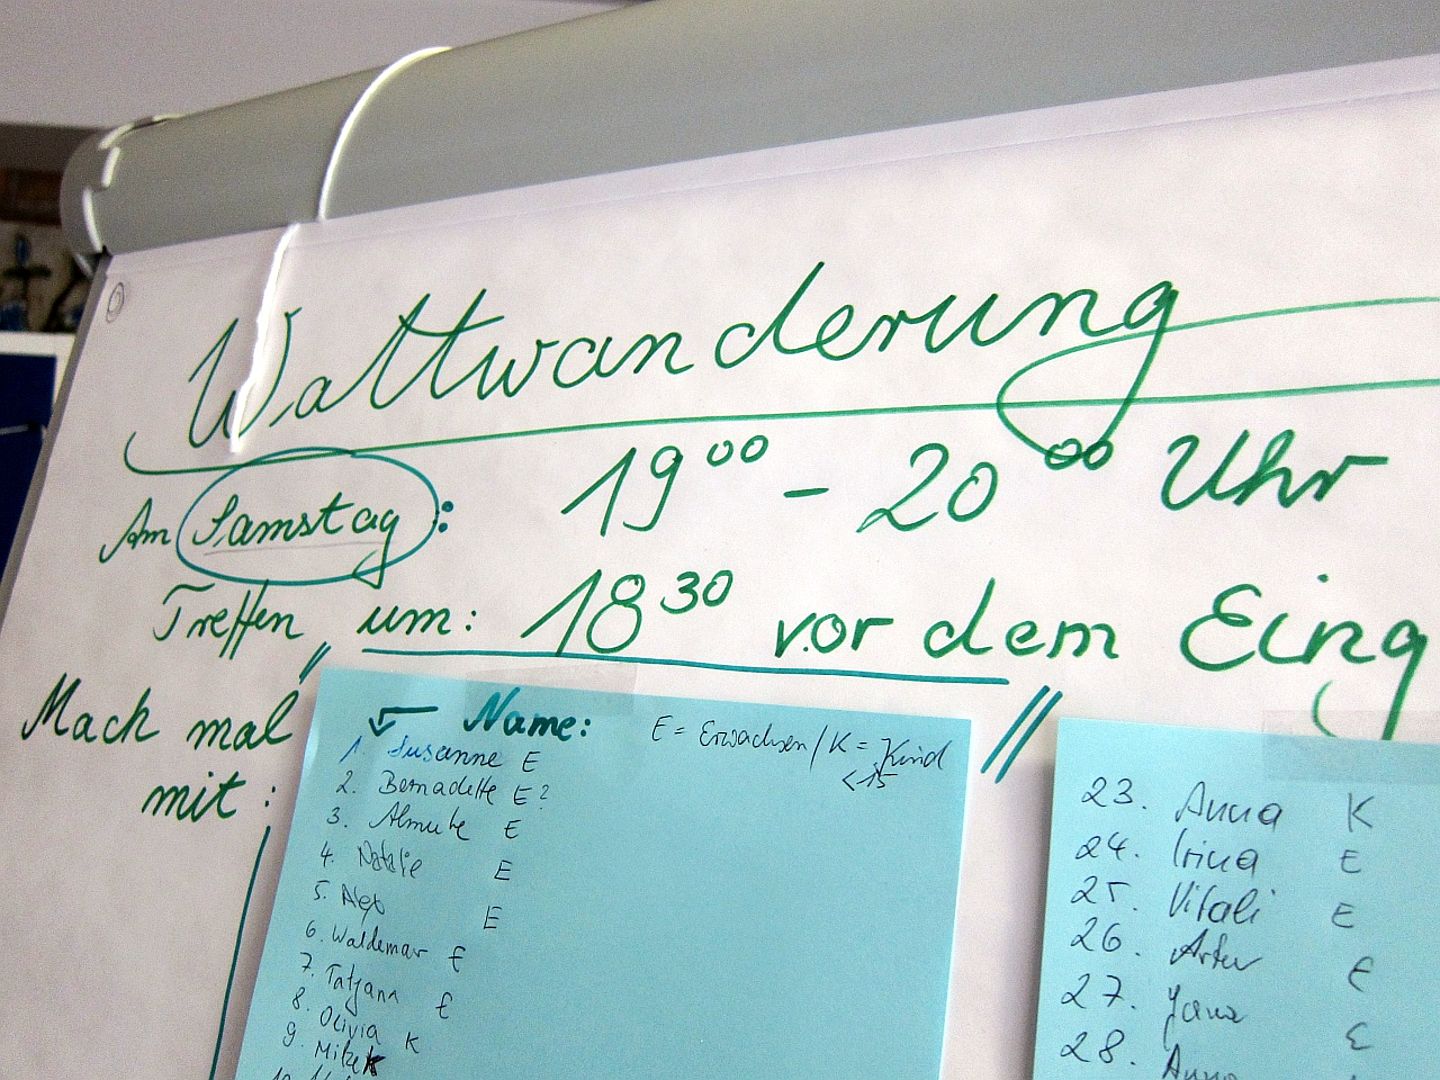 Wattwanderung
Am Samstag: 19⁰⁰ - 20⁰⁰ Uhr
Treffen um: 18³⁰ vor dem Eing
Mach mal
mit:
Name: E = Erwachsen / K = Kind
<15
1. Susanne E
2. Bernadette E?
3. Almute E
4. Natalie E
5. E
6. Waldemar E
7. Tatjana E
8. Olivia K
9. K
23. Anna K
24. Irina E
25. Vitali E
26. Artur E
27. Jana E
28. Anna